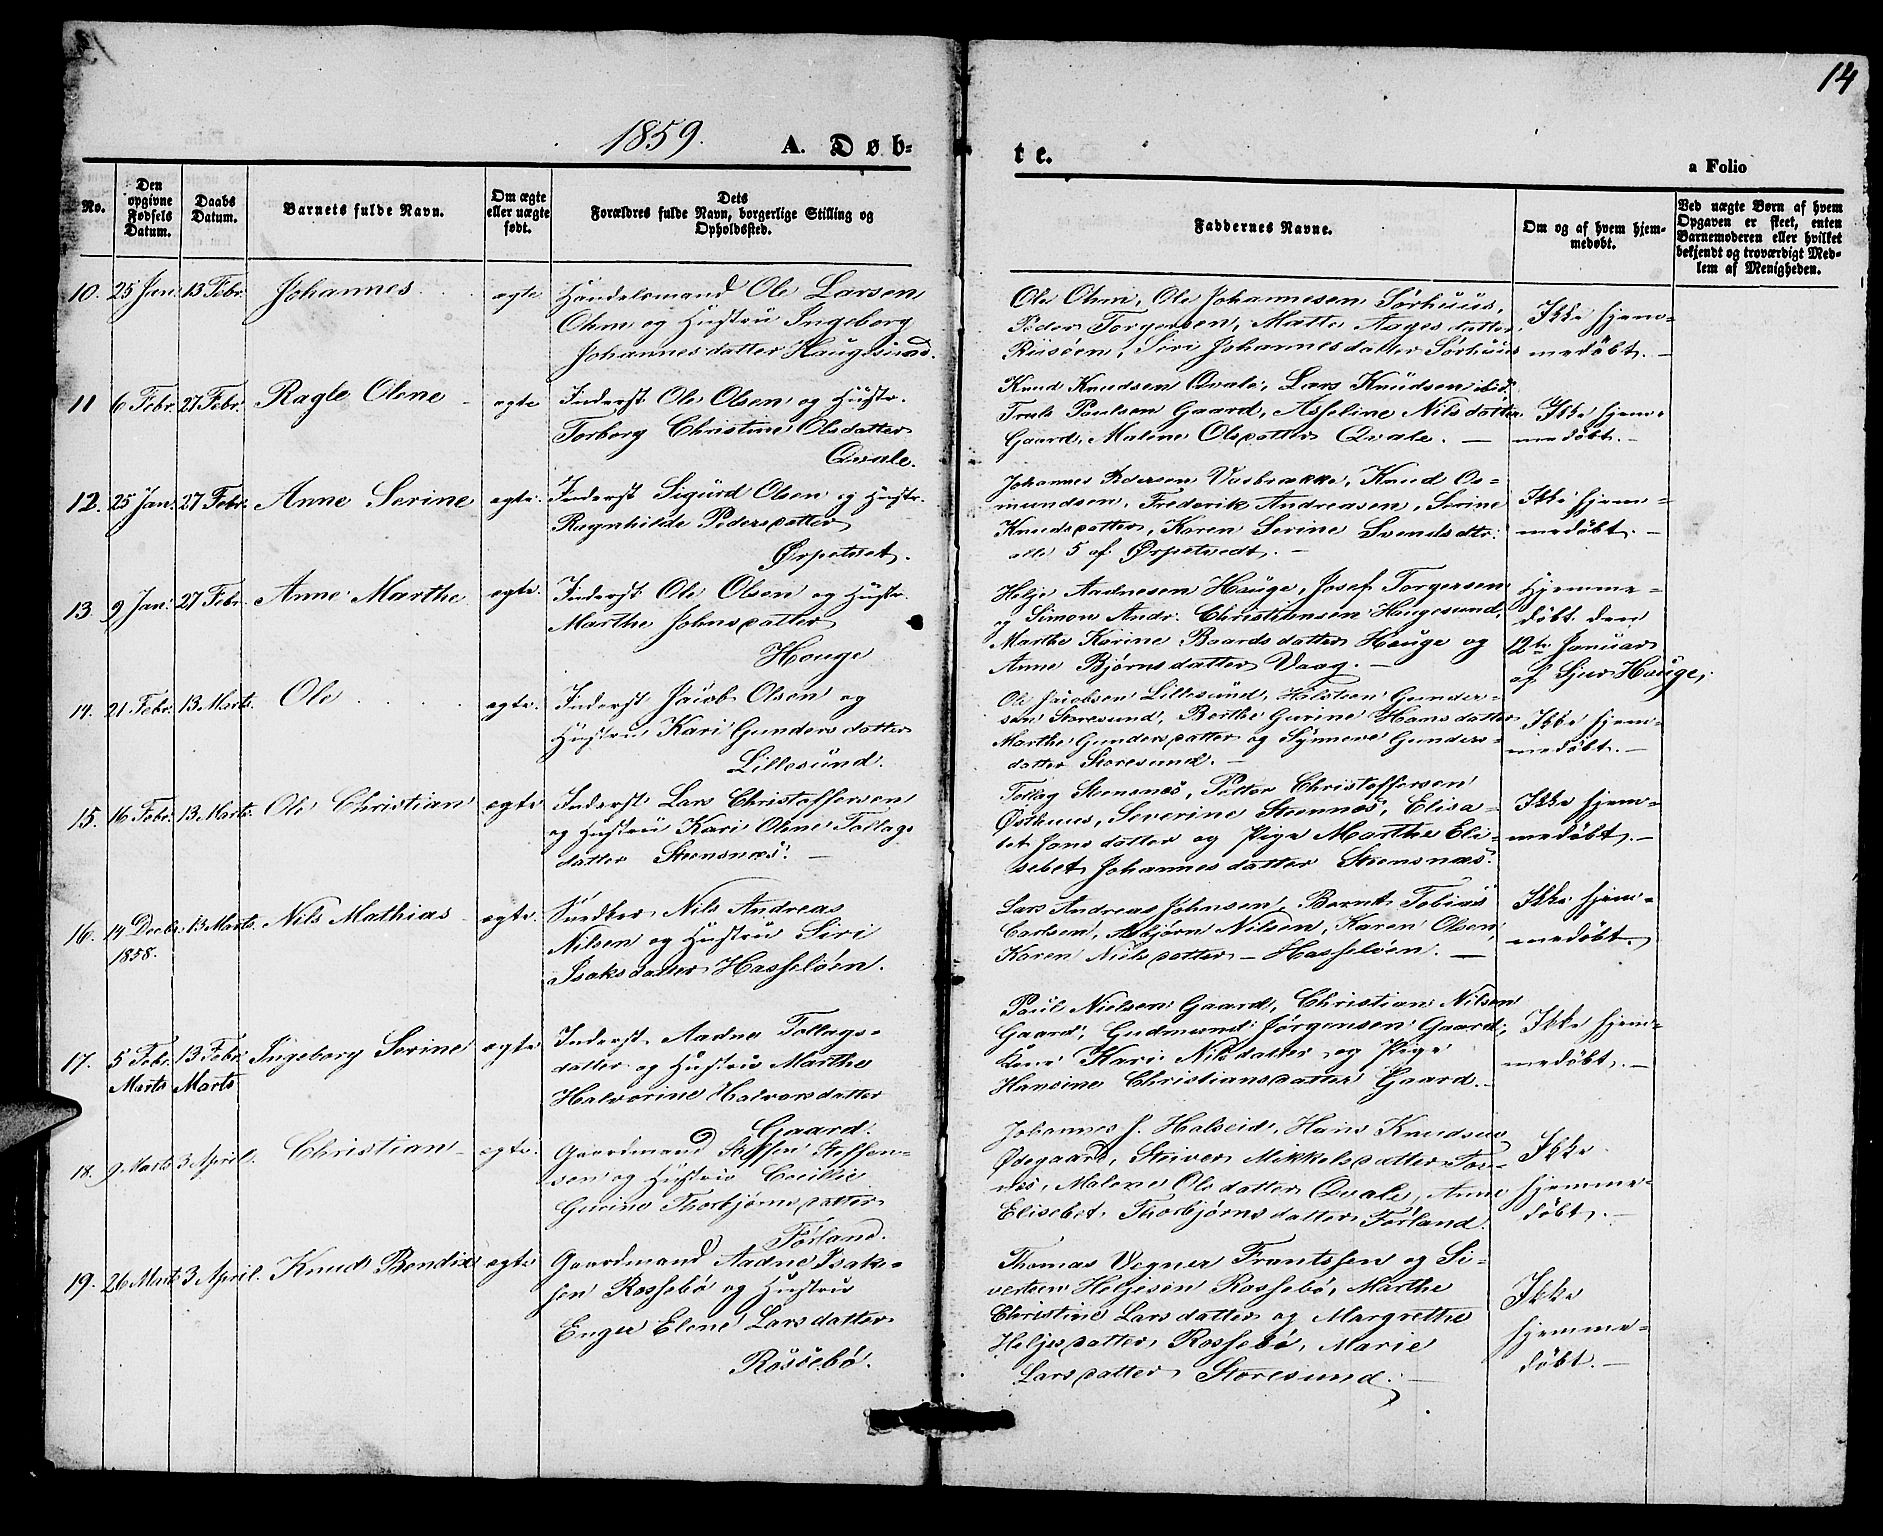 14
1859.
A. Døb-
te.
a Folio
No.
Den opgivne Fødsels Datum.
Daabs Datum.
Barnets fulde Navn.
Om ægte eller uægte født.
Dets
Forældres fulde Navn, borgerlige Stilling og
Opholdssted.
Faddernes Navne.
Om og af hvem hjem-
medøbt.
Ved uægte Børn af hvem
Opgaven er skeet, enten
Barnemoderen eller hvilket
bekjendt og troværdigt Med-
lem af Menigheden.
10. 25 Jan: 13 Febr. Johannes ægte Handelsmand Ole Larsen
Ohm og Hustru Ingeborg
Johannesdatter Haugesund.
Ole Ohm, Ole Johannesen Sørhuus,
Peder Torgersen, Matte Aagesdatter
Riisøen, Siri Johannesdatter Sørhuus
Ikke hjem-
medøbt.
11 6 Febr. 27 Febr. Ragle Olene ægte Inderst Ole Olsen og Hustr.
Torborg Christine Olsdatter
Qvale.
Knud Knudsen Qvale, Lars Knudsen ibid,
Truls Paulsen Gaard, Asseline Nilsdatter
Gaard, Malene Olsdatter Qvale.
Ikke hjem-
medøbt.
12. 25 Jan: 27 Febr: Anne Serine ægte. Inderst Sigurd Olsen og Hustr.
Ragnhilde Pedersdatter
Ørpetvet.
Johannes Pedersen Vasbrække, Knud Os-
mundsen, Frederik Andreasen, Serine
Knudsdatter, Karen Serine Svendsdtr.
alle 5 af Ørpetvedt.
Ikke hjem-
medøbt.
13 9 Jan: 27 Febr. Anne Marthe ægte. Inderst Ole Olsen og Hustr.
Marthe Johnsdatter
Hauge
Helje Aadnesen Hauge, Josef Torgersen
og Simon Andr. Christiansen Haugesund,
Marthe Karine Baardsdatter Hauge og
Anne Bjørnsdatter Vaag.
Hjemme-
døbt den
12te Januar
af Sjur Hauge,
14. 21 Febr. 13 Marts. Ole ægte. Inderst Jacob Olsen og
Hustru Kari Gundersdatter
Lillesund.
Ole Jacobsen Lillesund, Holsteen Gunder-
sen Storesund, Berthe Gurine Hansdatter
Marthe Gundersdatter og Synneve Gunders-
datter Storesund.
Ikke hjem-
medøbt.
15. 16 Febr. 13 Marts. Ole Christian ægte Inderst Lars Christoffersen
og Hustru Kari Olene Tollags
datter Steensnæs.
Tollag Steensnæs, Petter Christoffersen
Østhuus, Severine Steensnæs, Elisa-
bet Jansdatter og Pige Marthe Eli-
sebet Johannesdatter Steensnæs.
Ikke hjem-
medøbt.
16. 14 Decbr. 13 Marts. Nils Mathias ægte. Snedker Nils Andreas
1858.
Nilsen og Hustru Siri
Isaksdatter Hasseløen.
Lars Andreas Johnsen, Bernt Tobias
Carlsen, Asbjørn Nilsen, Karen Olsen,
Karen Nilsdatter Hasseløen.
Ikke hjem-
medøbt.
17. 5 Febr. 13 Febr. Ingeborg Serine ægte Inderst Aadne Tollags-
Marts Marts
datter og Hustru Marthe
Halvorine Halvorsdatter
Gaard.
Paul Nielsen Gaard, Christian Nilsen
Gaard, Gudmund Jørgensen Gaard,
Kone Kari Nilsdatter og Pige
Hansine Christiansdatter Gaard.
Ikke hjem-
medøbt.
18. 9 Marts 3 April. Christian ægte. Gaardmand Steffen Steffen-
sen og Hustru Cecilie
Gurine Thorbjørnsdatter
Førland.
Johannes J. Halseid, Hans Knudsen
Ødegaard, Mikkelsdatter Tor-
næs, Malene Olsdatter Qvale, Anne
Elisebet Thorbjørnsdatter Førland.
Ikke
hjemme-
døbt.
19. 26 Marts 3 April. Knud Bendix ægte Gaardmand Aadne Isak-
sen Røssebø og Hustru
Enger Elene Larsdatter
Røssebø.
Thomas Vegner Frantssen og Si-
vertsen Heljesen Røssebø, Marthe
Christine Larsdatter og Margrethe
Heljesdatter Røssebø, Marie
Larsdatter Storesund.
Ikke
hjemme-
døbt.